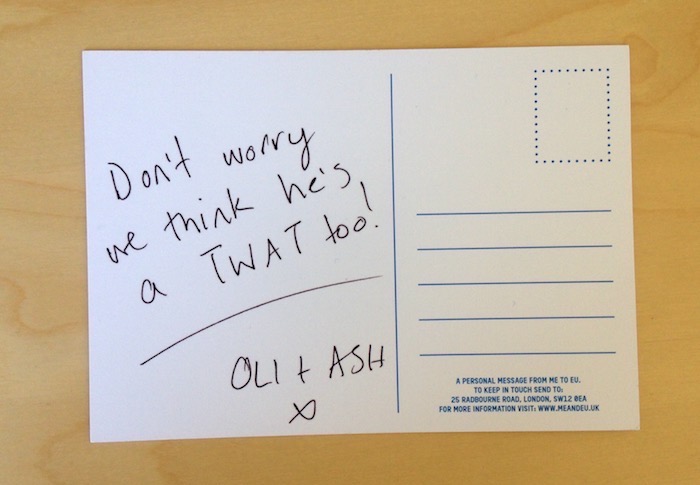 Don't worry
we think he's
a TWAT too!
OLI + ASH
X
A PERSONAL MESSAGE FROM ME TO EU.
TO KEEP IN TOUCH SEND TO:
25 RADBOURNE ROAD, LONDON, SW12 0EA
FOR MORE INFORMATION VISIT: WWW.MEANDEU.UK